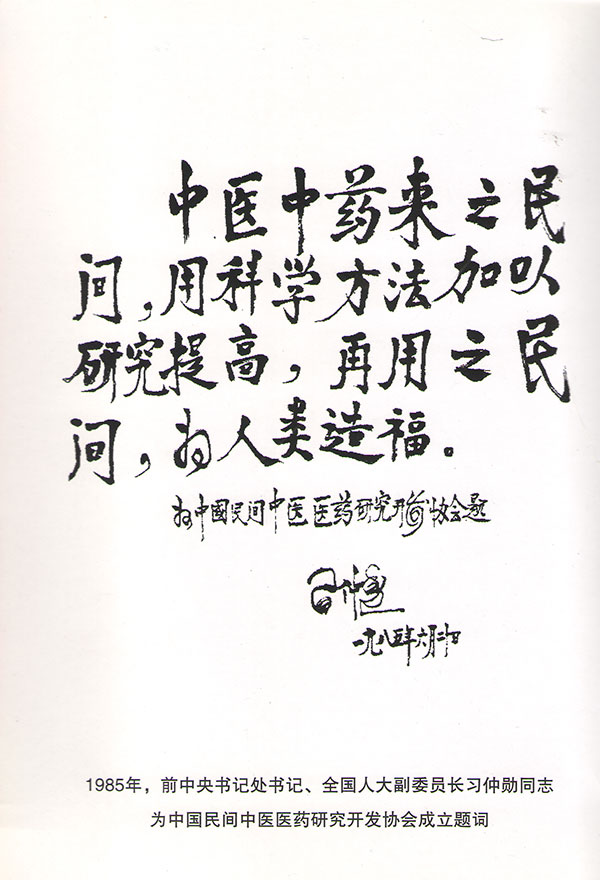 中医中药来之民
间，用科学方法加以
研究提高，再用之民
间，为人类造福。
为中國民间中医医药研究开发协会题
习仲勋
一九八五年六月二十日
1985年，前中央书记处书记、全国人大副委员长习仲勋同志
为中国民间中医医药研究开发协会成立题词